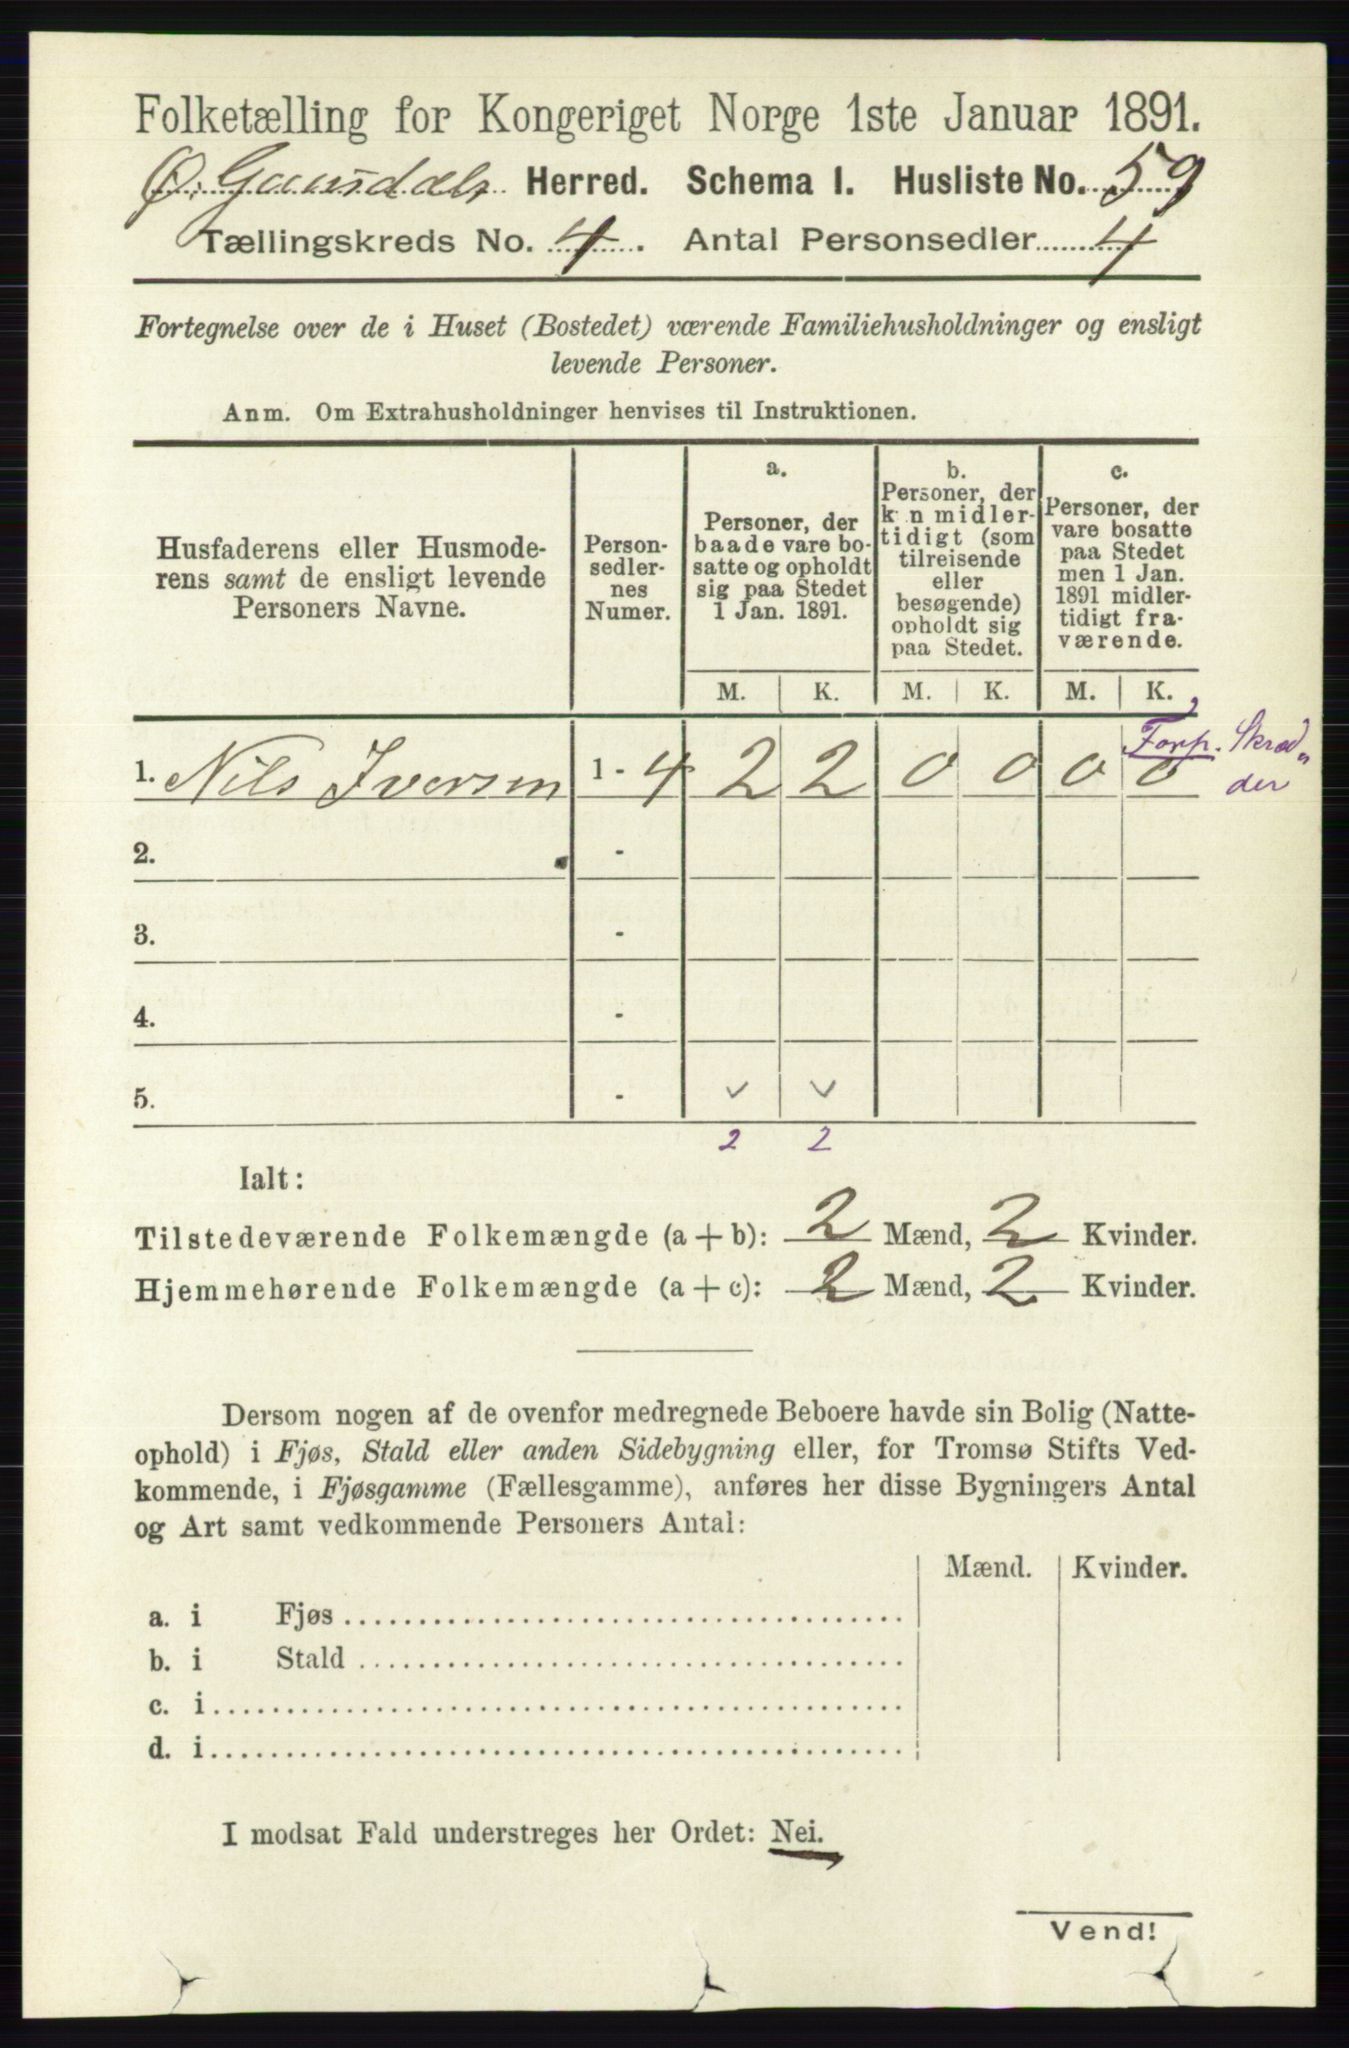 Folketælling for Kongeriget Norge 1ste Januar 1891.
Ø. Gausdals Herred. Schema I. Husliste No. 59
Tællingskreds No. 4. Antal Personsedler 4
Fortegnelse over de i Huset (Bostedet) værende Familiehusholdninger og ensligt
levende Personer.
Anm. Om Extrahusholdninger henvises til Instruktionen.
Husfaderens eller Husmode-
rens samt de ensligt levende
Personers Navne.
Person-
sedler-
nes
Numer.
a.
Personer, der
baade vare bo-
satte og opholdt
sig paa Stedet
1 Jan. 1891.
b.
Personer, der
kun midler-
tidigt (som
tilreisende
eller
besøgende)
opholdt sig
paa Stedet.
c.
Personer, der
vare bosatte
paa Stedet
men 1 Jan.
1891 midler-
tidigt fra-
værende.
M. K. M. K. M. K.
Forp. Skræd„
der
1. Nils Iversen 1 - 4 2 2 0 0 0 0
2. -
3. -
4. -
5. -
2 2
Ialt:
Tilstedeværende Folkemængde (a + b): 2 Mænd, 2 Kvinder.
Hjemmehørende Folkemængde (a + c): 2 Mænd, 2 Kvinder.
Dersom nogen af de ovenfor medregnede Beboere havde sin Bolig (Natte-
ophold) i Fjøs, Stald eller anden Sidebygning eller, for Tromsø Stifts Ved-
kommende, i Fjøsgamme (Fællesgamme), anføres her disse Bygningers Antal
og Art samt vedkommende Personers Antal:
Mænd. Kvinder.
a. i Fjøs
b. i Stald
c. i
d. i
I modsat Fald understreges her Ordet: Nei.
Vend!